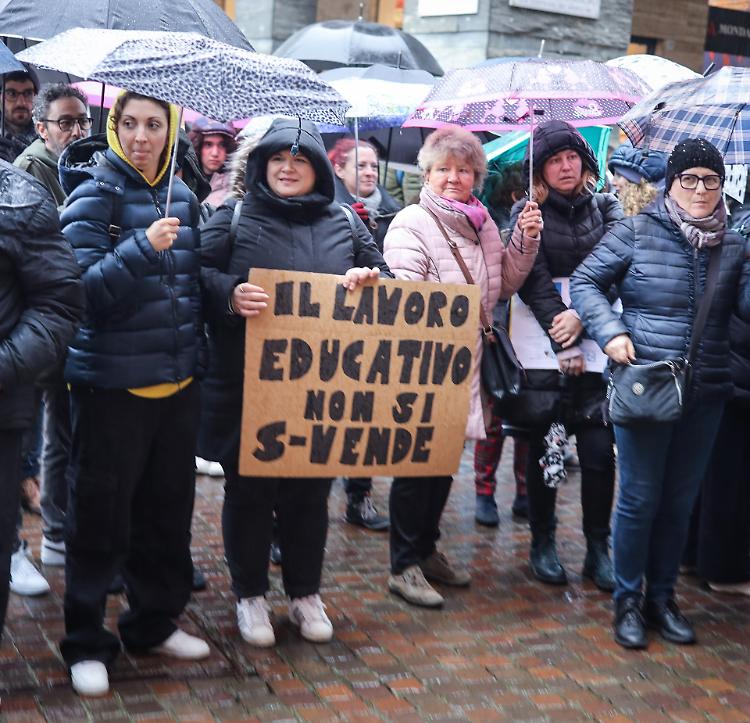 IL LAVORO
EDUCATIVO
NON SI
S-VENDE
MONDA